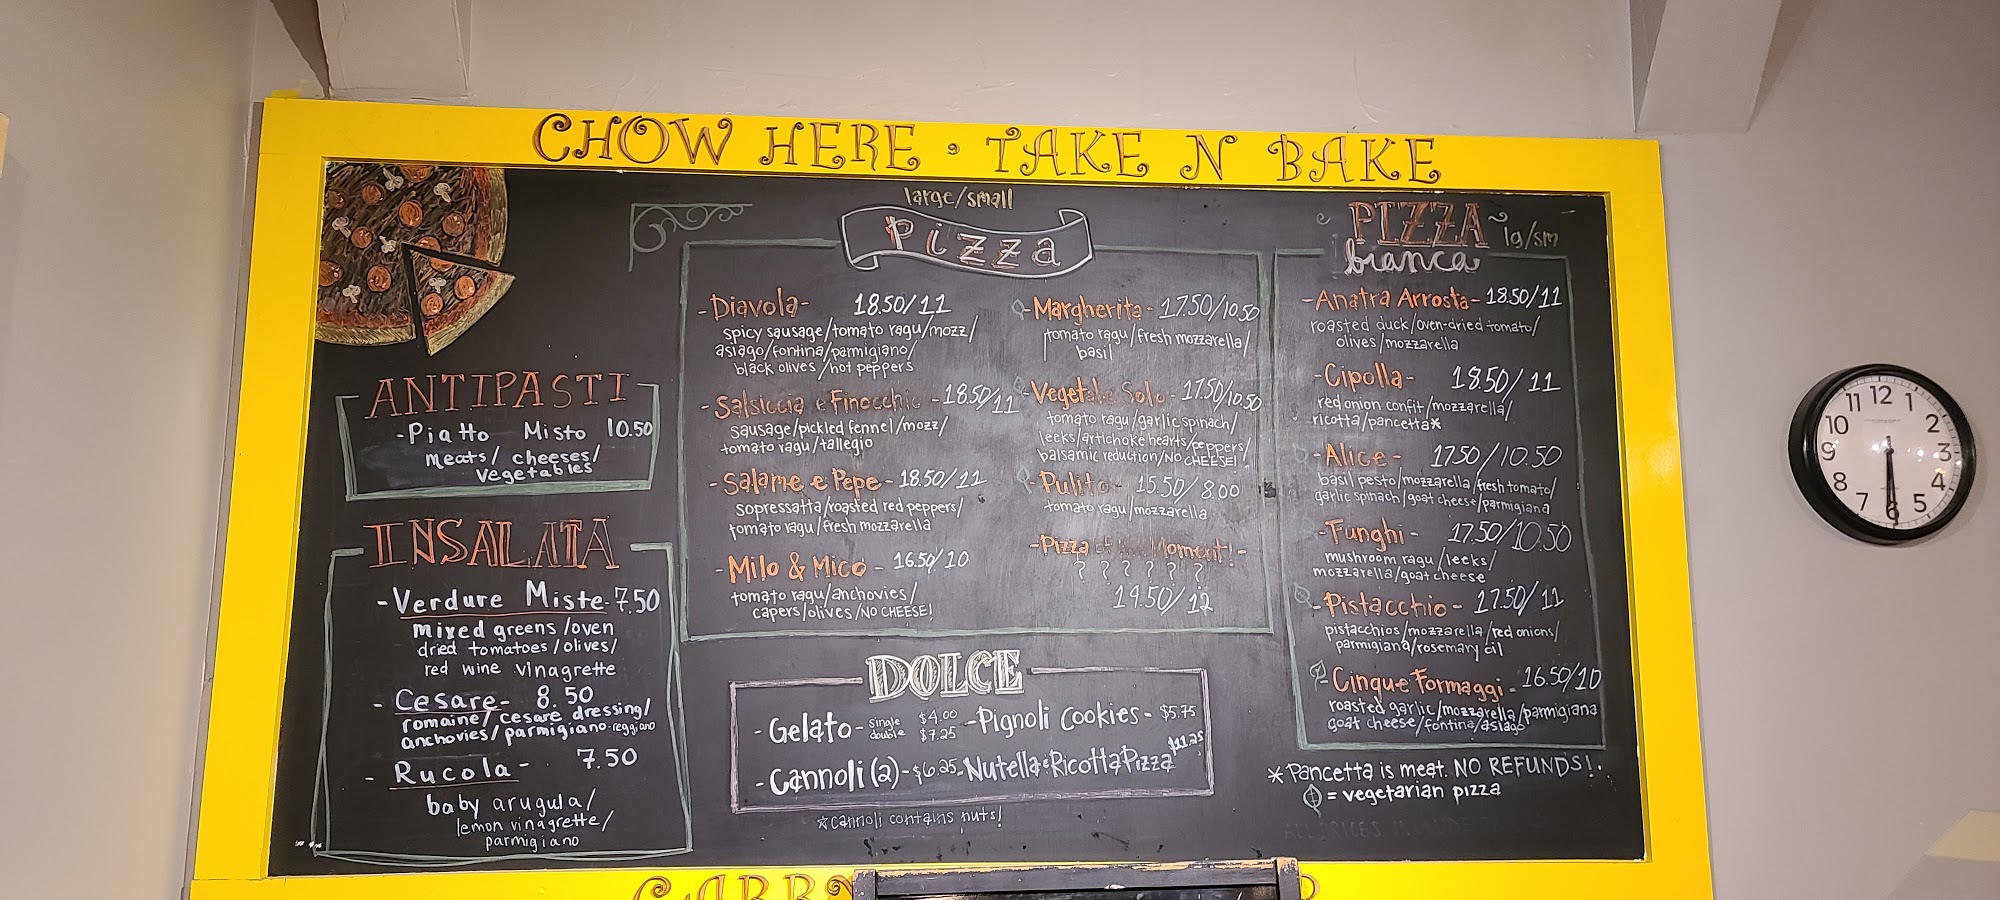 CHOW HERE • TAKE N BAKE
ANTIPASTI
-Piatto Misto 10.50
meats/ cheeses/
vegetables
INSALATA
-Verdure Miste-7.50
mixed greens/oven
dried tomatoes/olives/
red wine vinagrette
- Cesare- 8.50
romaine/cesare dressing/
anchovies/parmigiano-reggiano
- Rucola- 7.50
baby arugula/
lemon vinagrette/
parmigiano
large/small
Pizza
-Diavola- 18.50/11
spicy sausage/tomato ragu/mozz/
asiago/fontina/parmigiano/
black olives/hot peppers
-Salsiccia e Finocchio-18.50/11
sausage/pickled fennel/mozz/
tomato ragu/tallegio
-Salame e Pepe-18.50/11
sopressatta/roasted red peppers/
tomato ragu/fresh mozzarella
-Milo & Mico- 16.50/10
tomato ragu/anchovies/
capers/olives/NO CHEESE!
-Margherita-17.50/10.50
tomato ragu/fresh mozzarella/
basil
-Vegetale Solo-17.50/10.50
tomato ragu/garlic spinach/
leeks/artichoke hearts/peppers/
balsamic reduction/NO CHEESE!
-Pulito- 15.50/8.00
tomato ragu/mozzarella
-Pizza of the Moment!-
? ? ? ? ? ?
19.50/12
PIZZA~ lg/sm
bianca
-Anatra Arrosta-18.50/11
roasted duck/oven-dried tomato/
olives/mozzarella
-Cipolla- 18.50/11
red onion confit/mozzarella/
ricotta/pancetta*
-Alice- 17.50/10.50
basil pesto/mozzarella/fresh tomato/
garlic spinach/goat cheese/parmigiana
-Funghi- 17.50/10.50
mushroom ragu/leeks/
mozzarella/goat cheese
-Pistacchio- 17.50/11
pistachios/mozzarella/red onions/
parmigiana/rosemary oil
-Cinque Formaggi-16.50/10
roasted garlic/mozzarella/parmigiana
goat cheese/fontina/asiago
*Pancetta is meat. NO REFUNDS!.
= vegetarian pizza
DOLCE
-Gelato- single $4.00
double $7.25
-Pignoli Cookies- $5.75
-Cannoli(2)-$6.25
-Nutella&Ricotta Pizza $11.25
☆Cannoli contains nuts!
12 1 2 3 4 5 6 7 8 9 10 11